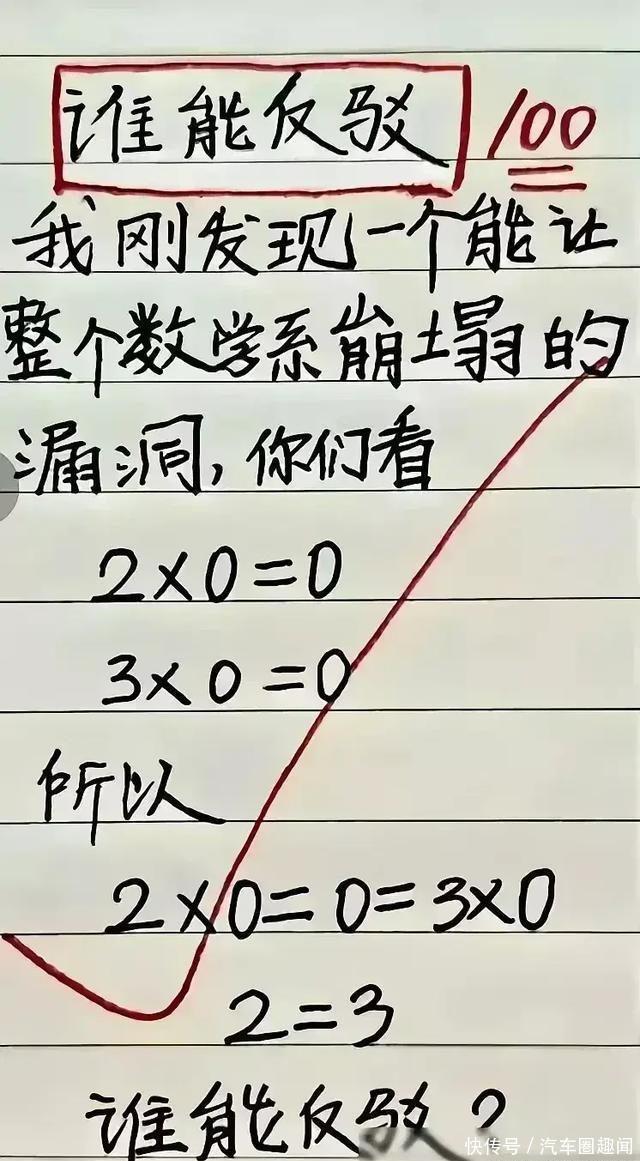 谁能反驳 100
我刚发现一个能让
整个数学系崩塌的
漏洞,你们看
2×0=0
3×0=0
所以
2×0=0=3×0
2=3
谁能反驳?
快传号/汽车圈趣闻